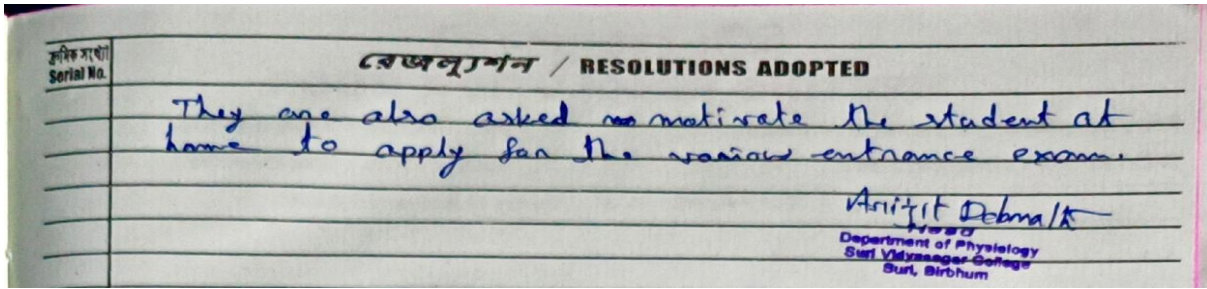 ক্রমিক সংখ্যা
Serial No.
রেজল্যুশন / RESOLUTIONS ADOPTED
They are also asked motivate the student at
home to apply for the various entrance exam.
Arijit Debnath
Head
Department of Physiology
Suri Vidyasagar College
Suri, Birbhum